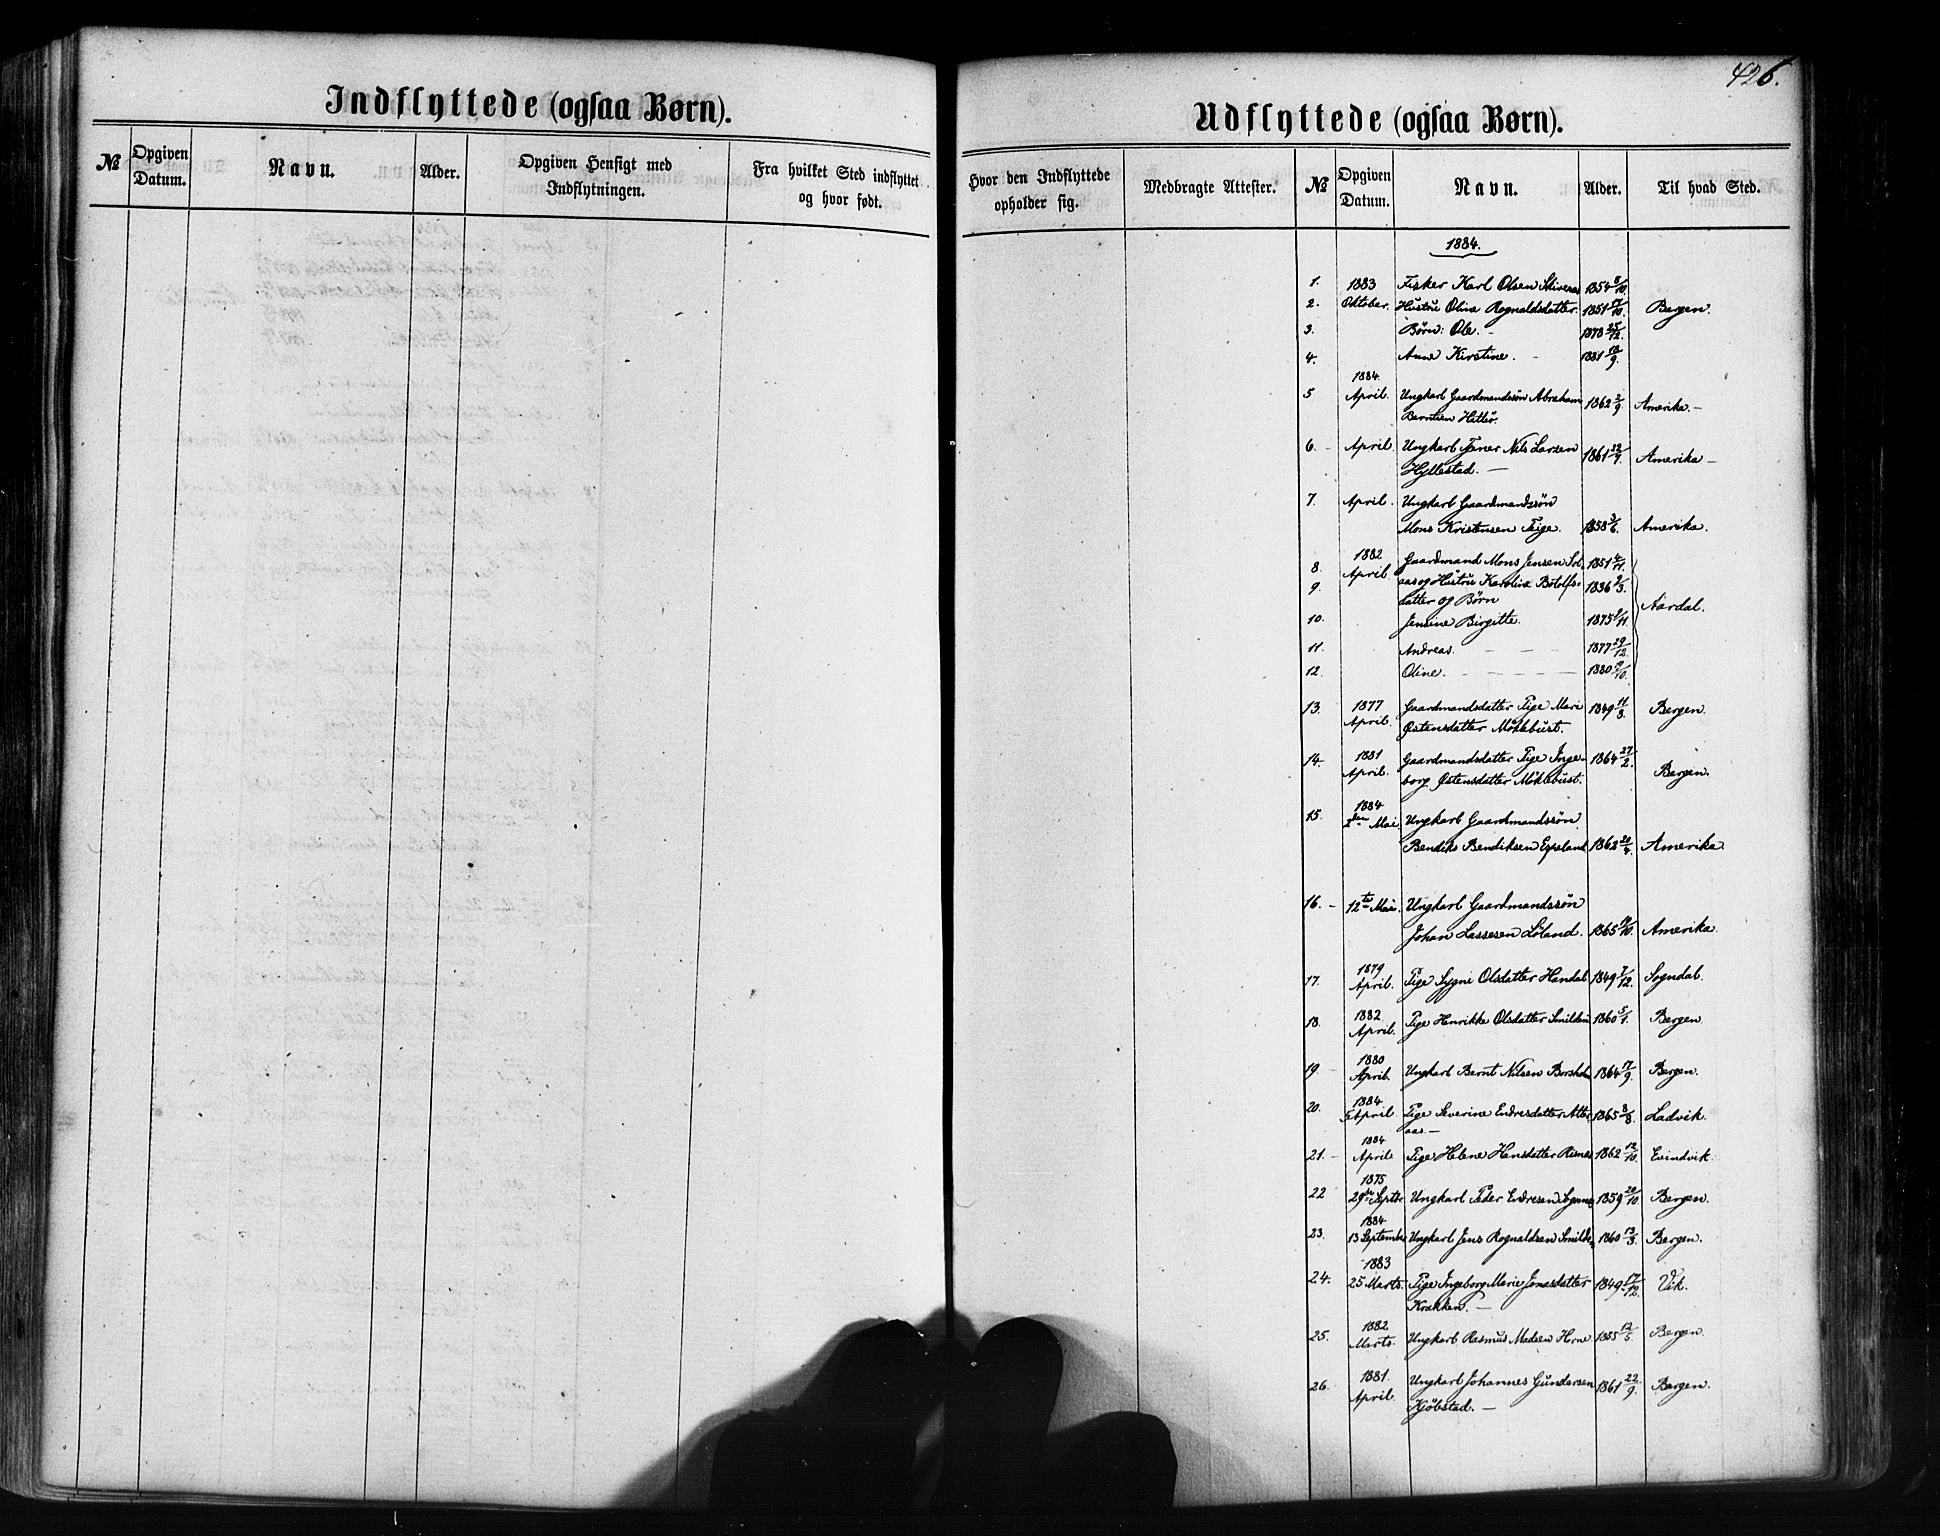 426.
Indflyttede (ogsaa Børn).
№ Opgiven Datum. Navn. Alder. Opgiven Hensigt med Indflytningen. Fra hvilket Sted indflyttet og hvor født.
Udflyttede (ogsaa Børn).
Hvor den Indflyttede opholder sig. Medbragte Attester. № Opgiven Datum. Navn. Alder. Til hvad Sted.
1884.
1. 1883 Fisker Karl Olsen 1854 8/10
2. Oktober. Hustru Oline Rognaldsdatter 1851 17/10. Bergen.
3. Børn: Ole. - 1878 25/12.
4. Anne Kirstine. - 1881 18/9.
1884.
5 April. Ungkarl Gaardmandssøn Abraham 1862 2/9. Amerika. -
Berntsen Hatløi.
6. - April Ungkarl Tjener Nils Larsen 1861 22/9. Amerika -
Hyllestad. -
7. April. Ungkarl Gaardmandssøn
Mons Kristensen Teige. 1858 3/6. Amerika.
1882
8. April Gaardmand Mons Jensen Sol- 1851 4/11.
9. aas og Hustru Karolina Botolfs- 1836 2/3.
datter og Børn Aardal.
10. Jensine Birgitte. 1875 2/11.
11. Andreas. - - - 1877 29/12.
12. Oline. - - - - 1880 9/10.
13. 1877 Gaardmandsdatter Pige Mari 1849 11/8. Bergen.
April. Østensdatter Møklebust.
14. 1881 Gaardmandsdatter Pige Inge- 1864 27/2.
April. borg Østensdatter Møklebust. Bergen.
1884
15. 2den Mai Ungkarl Gaardmandssøn
Bendiks Bendiksen Espeland 1862 20/4. Amerika.
16. - 12te Mai. Ungkarl Gaardmandssøn
Johan Lassesen Løland. 1865 19/10. Amerika.
1879
17. April. Pige Sygni Olsdatter Handal 1849 7/12. Sogndal.
1882
18. April. Pige Henrikke Olsdatter Smilden 1860 5/1. Bergen.
1880
19. April. Ungkarl Bernt Nilsen 1864 17/9. Bergen.
1884.
20. 5 April Pige Severine Endresdatter Atter- 1865 3/8. Ladvik.
aas -
1884
21. - April Pige Helene Hansdatter Risnes 1862 12/10. Evindvik.
1875
22 29de Septbr Ungkarl Peder Endresen 1859 20/10 Bergen.
1884
23. 13 September Ungkarl Jens Rognaldsen Smilden 1860 13/3. Bergen.
1883
24. 25 Marts. Pige Ingeborg Marie Jonasdatter 1849 17/12. Vik.
Krakken. -
1882
25. Marts. Ungkarl Rasmus Madsen Horne 1855 12/5. Bergen.
1881.
26. April. Ungkarl Johannes Gundersen 1861 22/9. Bergen.
Kjøbstad. -